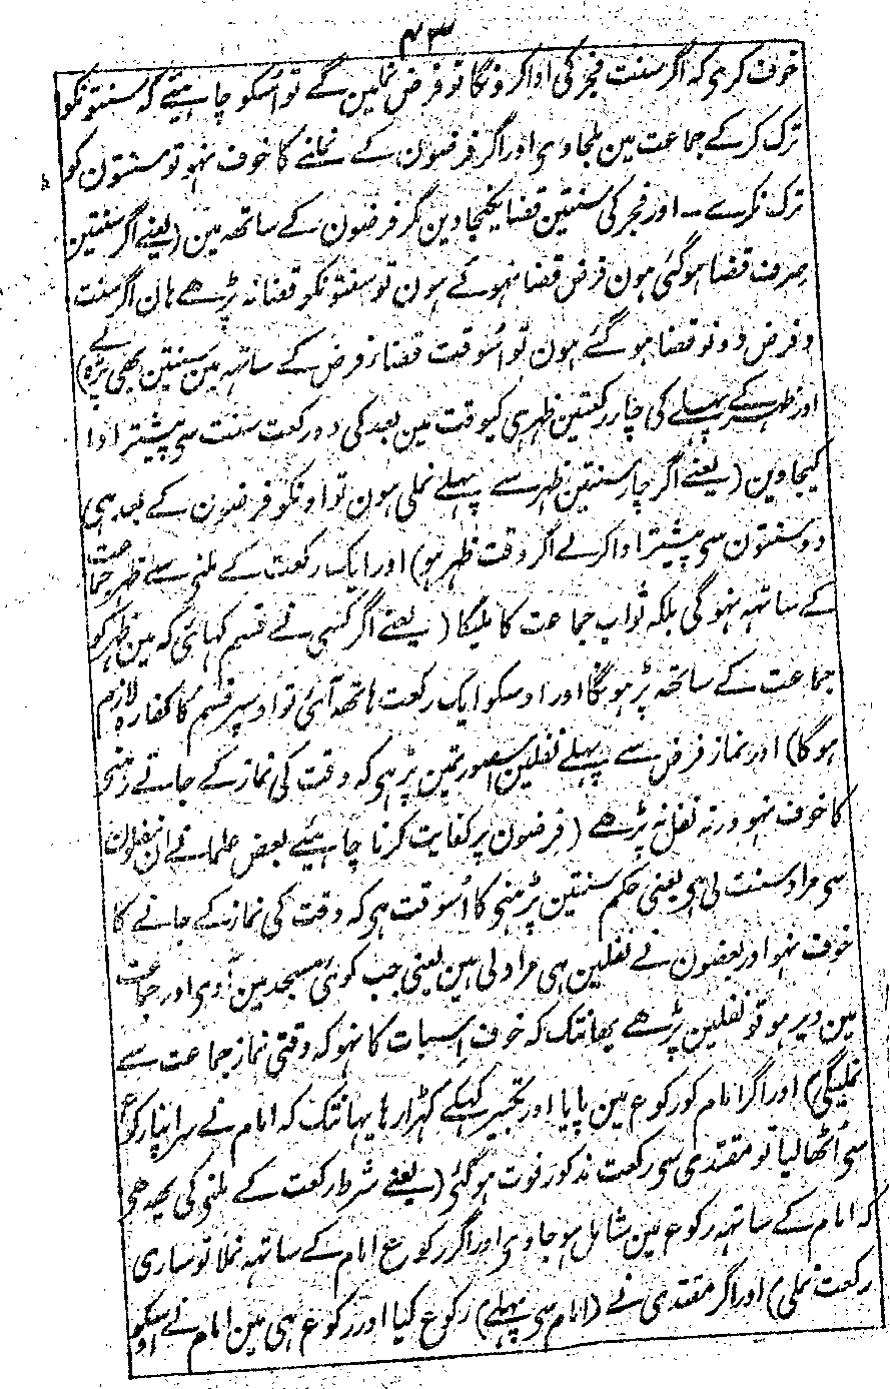 ۴۳
خوف کری کہ اگر سنت فجر کی ادا کرونگا تو فرض نملین گے تو اُسکو چاہئیے کہ سنتونکو
ترک کر کے جماعت مین ملجاوی اور اگر فرضون کے نملنے کا خوف نہو تو سنتون کو
ترک نکرے ۔ اور فجر کی سنتین قضا نکیجاوین مگر فرضون کے ساتھ مین (یعنے اگر سنتین
صرف قضا ہو گئی ہون فرض قضا نہوئے ہون تو سنتونکو قضا نہ پڑھے ہان اگر سنت
و فرض دونو قضا ہو گئے ہون تو اُسوقت قضاء فرض کے ساتہہ مین سنتین بھی پڑہ لے)
اور ظہر کے پہلے کی چار رکعتین ظہر ہی کیوقت مین بعد کی دو رکعت سنت سی پیشتر ادا
کیجاوین (یعنے اگر چار سنتین ظہر سے پہلے نملی ہون تو اونکو فرضون کے بعد ہی
دو سنتون سی پیشتر ادا کر لے اگر وقت ظہر ہو) اور ایک رکعت کے ملنی سے ظہر جماعت
کے ساتہہ نہو گی بلکہ ثواب جماعت کا ملیگا (یعنے اگر کسی نے قسم کہائی کہ مین ظہر کو
جماعت کے ساتھ پڑہونگا اور اوسکو ایک رکعت ہاتھہ آئی تو اوسپر قسم کا کفارہ لازم
ہوگا) اور نماز فرض سے پہلے نفلین اسصورتمین پڑہی کہ وقت کی نماز کے جاتے رہنی
کا خوف نہو ورنہ نفل نہ پڑھے (فرضون پر کفایت کرنا چاہیئے بعض علمانے ان نفلون
سی مراد سنت لی ہی یعنی حکم سنتین پڑہنی کا اُسوقت ہی کہ وقت کی نماز کے جانے کا
خوف نہو اور بعضون نے نفلین ہی مراد لی ہین یعنی جب کوئی مسجد مین آوی اور جماعت
مین دیر ہو تو نفلین پڑھے یھانتک کہ خوف اسبات کا نہو کہ وقتی نماز جماعت سے
نملیگی) اور اگر امام کو رکوع مین پایا اور تکبیر کہکے کہڑا رہا یہانتک کہ امام نے سر اپنا رکوع
سی اُٹھا لیا تو مقتدی سی رکعت مذکور فوت ہو گئی (یعنے شرط رکعت کے ملنی کی یھ ھی
کہ امام کے ساتہہ رکوع مین شامل ہو جاوی اور اگر رکوع امام کے ساتہہ نملا تو ساری
رکعت نملی) اور اگر مقتدی نے (امام سی پہلے) رکوع کیا اور رکوع ہی مین امام نے اوسکو